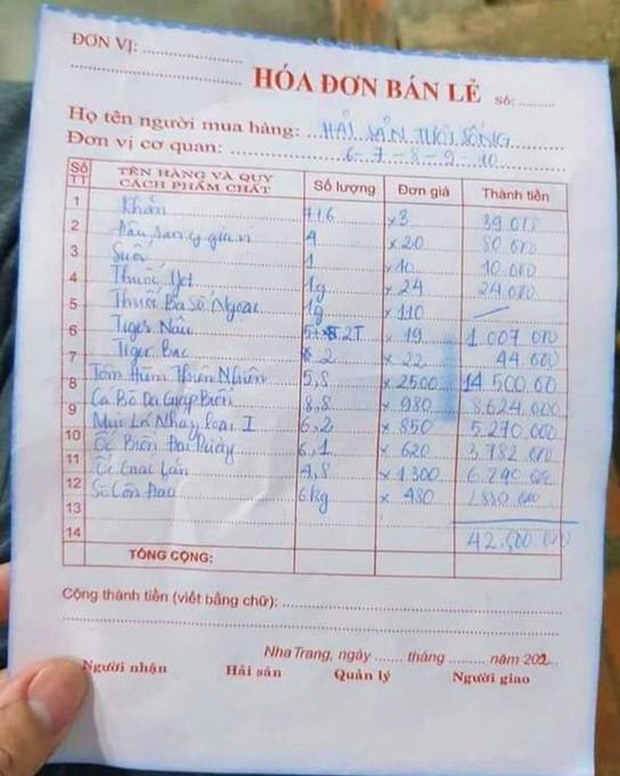 ĐƠN VỊ: ....................
HÓA ĐƠN BÁN LẺ Số: .........
Họ tên người mua hàng: HẢI SẢN TƯƠI SỐNG
Đơn vị cơ quan: 6-7-8-9-10
Số TT TÊN HÀNG VÀ QUY CÁCH PHẨM CHẤT Số lượng Đơn giá Thành tiền
1 Khăn x3 39 000
2 Đậu 4 x20 80 000
3 Suối 1 x10 10.000
4 Thuốc Jet 1g x24 24.000
5 Thuốc Ba Số Ngoại 1g x110
6 Tiger Nâu x19 1.007 000
7 Tiger Bạc 2 x22 44 000
8 Tôm Hùm Thiên Nhiên 5,8 x2500 14 500.00
9 Cá Bò Da Giáp Biển 8,8 x980 8.624.000
10 Mực Lá Nháy loại I 6,2 x850 5.270.000
11 Ốc Biển 6,1 x620 3.782 000
12 Ốc 4,8 x1.300 6.240 000
13 Sò Côn Đảo 6kg x480 2880 000
14 42.500.000
TỔNG CỘNG:
Cộng thành tiền (viết bằng chữ): ....................
Nha Trang, ngày ....... tháng ......... năm 202...
Người nhận Hải sản Quản lý Người giao